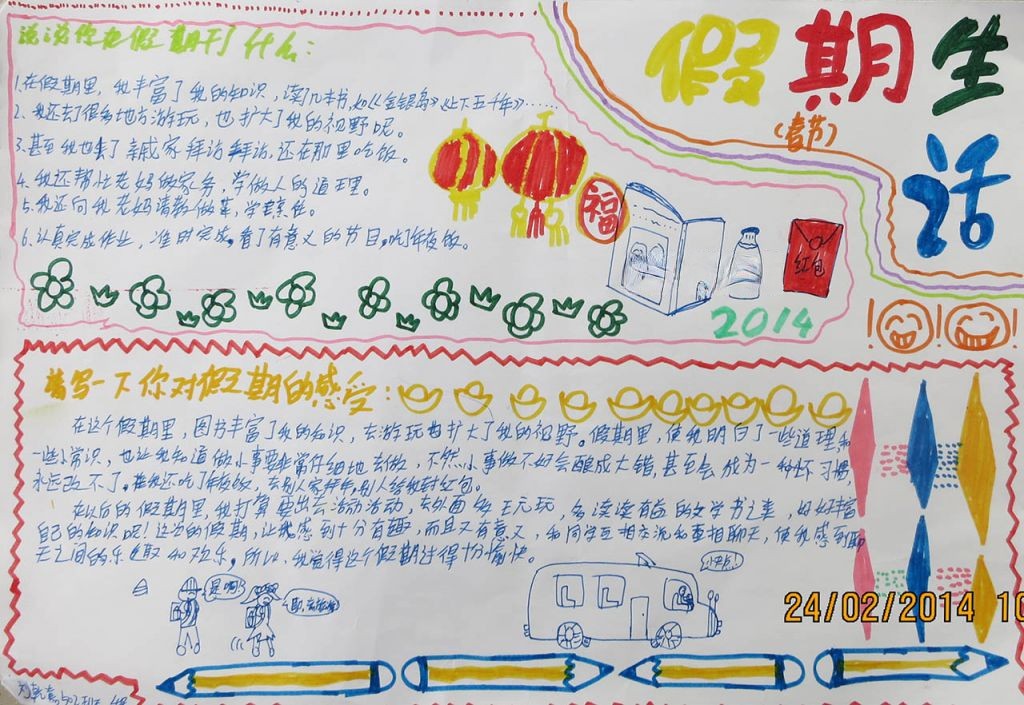 假期生
话
(春节)
说说你在假期干了什么:
1.在假期里，我丰富了我的知识，读几本书，如《金银岛》《上下五千年》……
2.我还去了很多地方游玩，也扩大了我的视野呢。
3.甚至我也去了亲戚家拜访拜访，还在那里吃饭。
4.我还帮忙老妈做家务，学做人的道理。
5.我还向我老妈请教做菜，学烹饪。
6.认真完成作业，准时完成，看了有意义的节目，吃年夜饭。
福
红包
2014
请写一下你对假期的感受:
在这个假期里，图书丰富了我的知识，去游玩也扩大了我的视野。假期里，使我明白了一些道理和
一些小常识，也让我知道做小事要非常仔细地去做，不然小事做不好会酿成大错，甚至会成为一种坏习惯，
永远改不了。在我还吃了年夜饭，去别人家拜年，别人给我封红包。
在以后的假期里，我打算要出去活动活动，去外面多玩玩，多读读有益的文学书之类，好好丰富
自己的知识呢！这次的假期，让我感到十分有趣，而且又有意义，和同学互相交流和互相聊天，使我感到聊
天之间的乐趣和欢乐。所以，我觉得这个假期过得十分愉快。
是啊!
24/02/2014 10